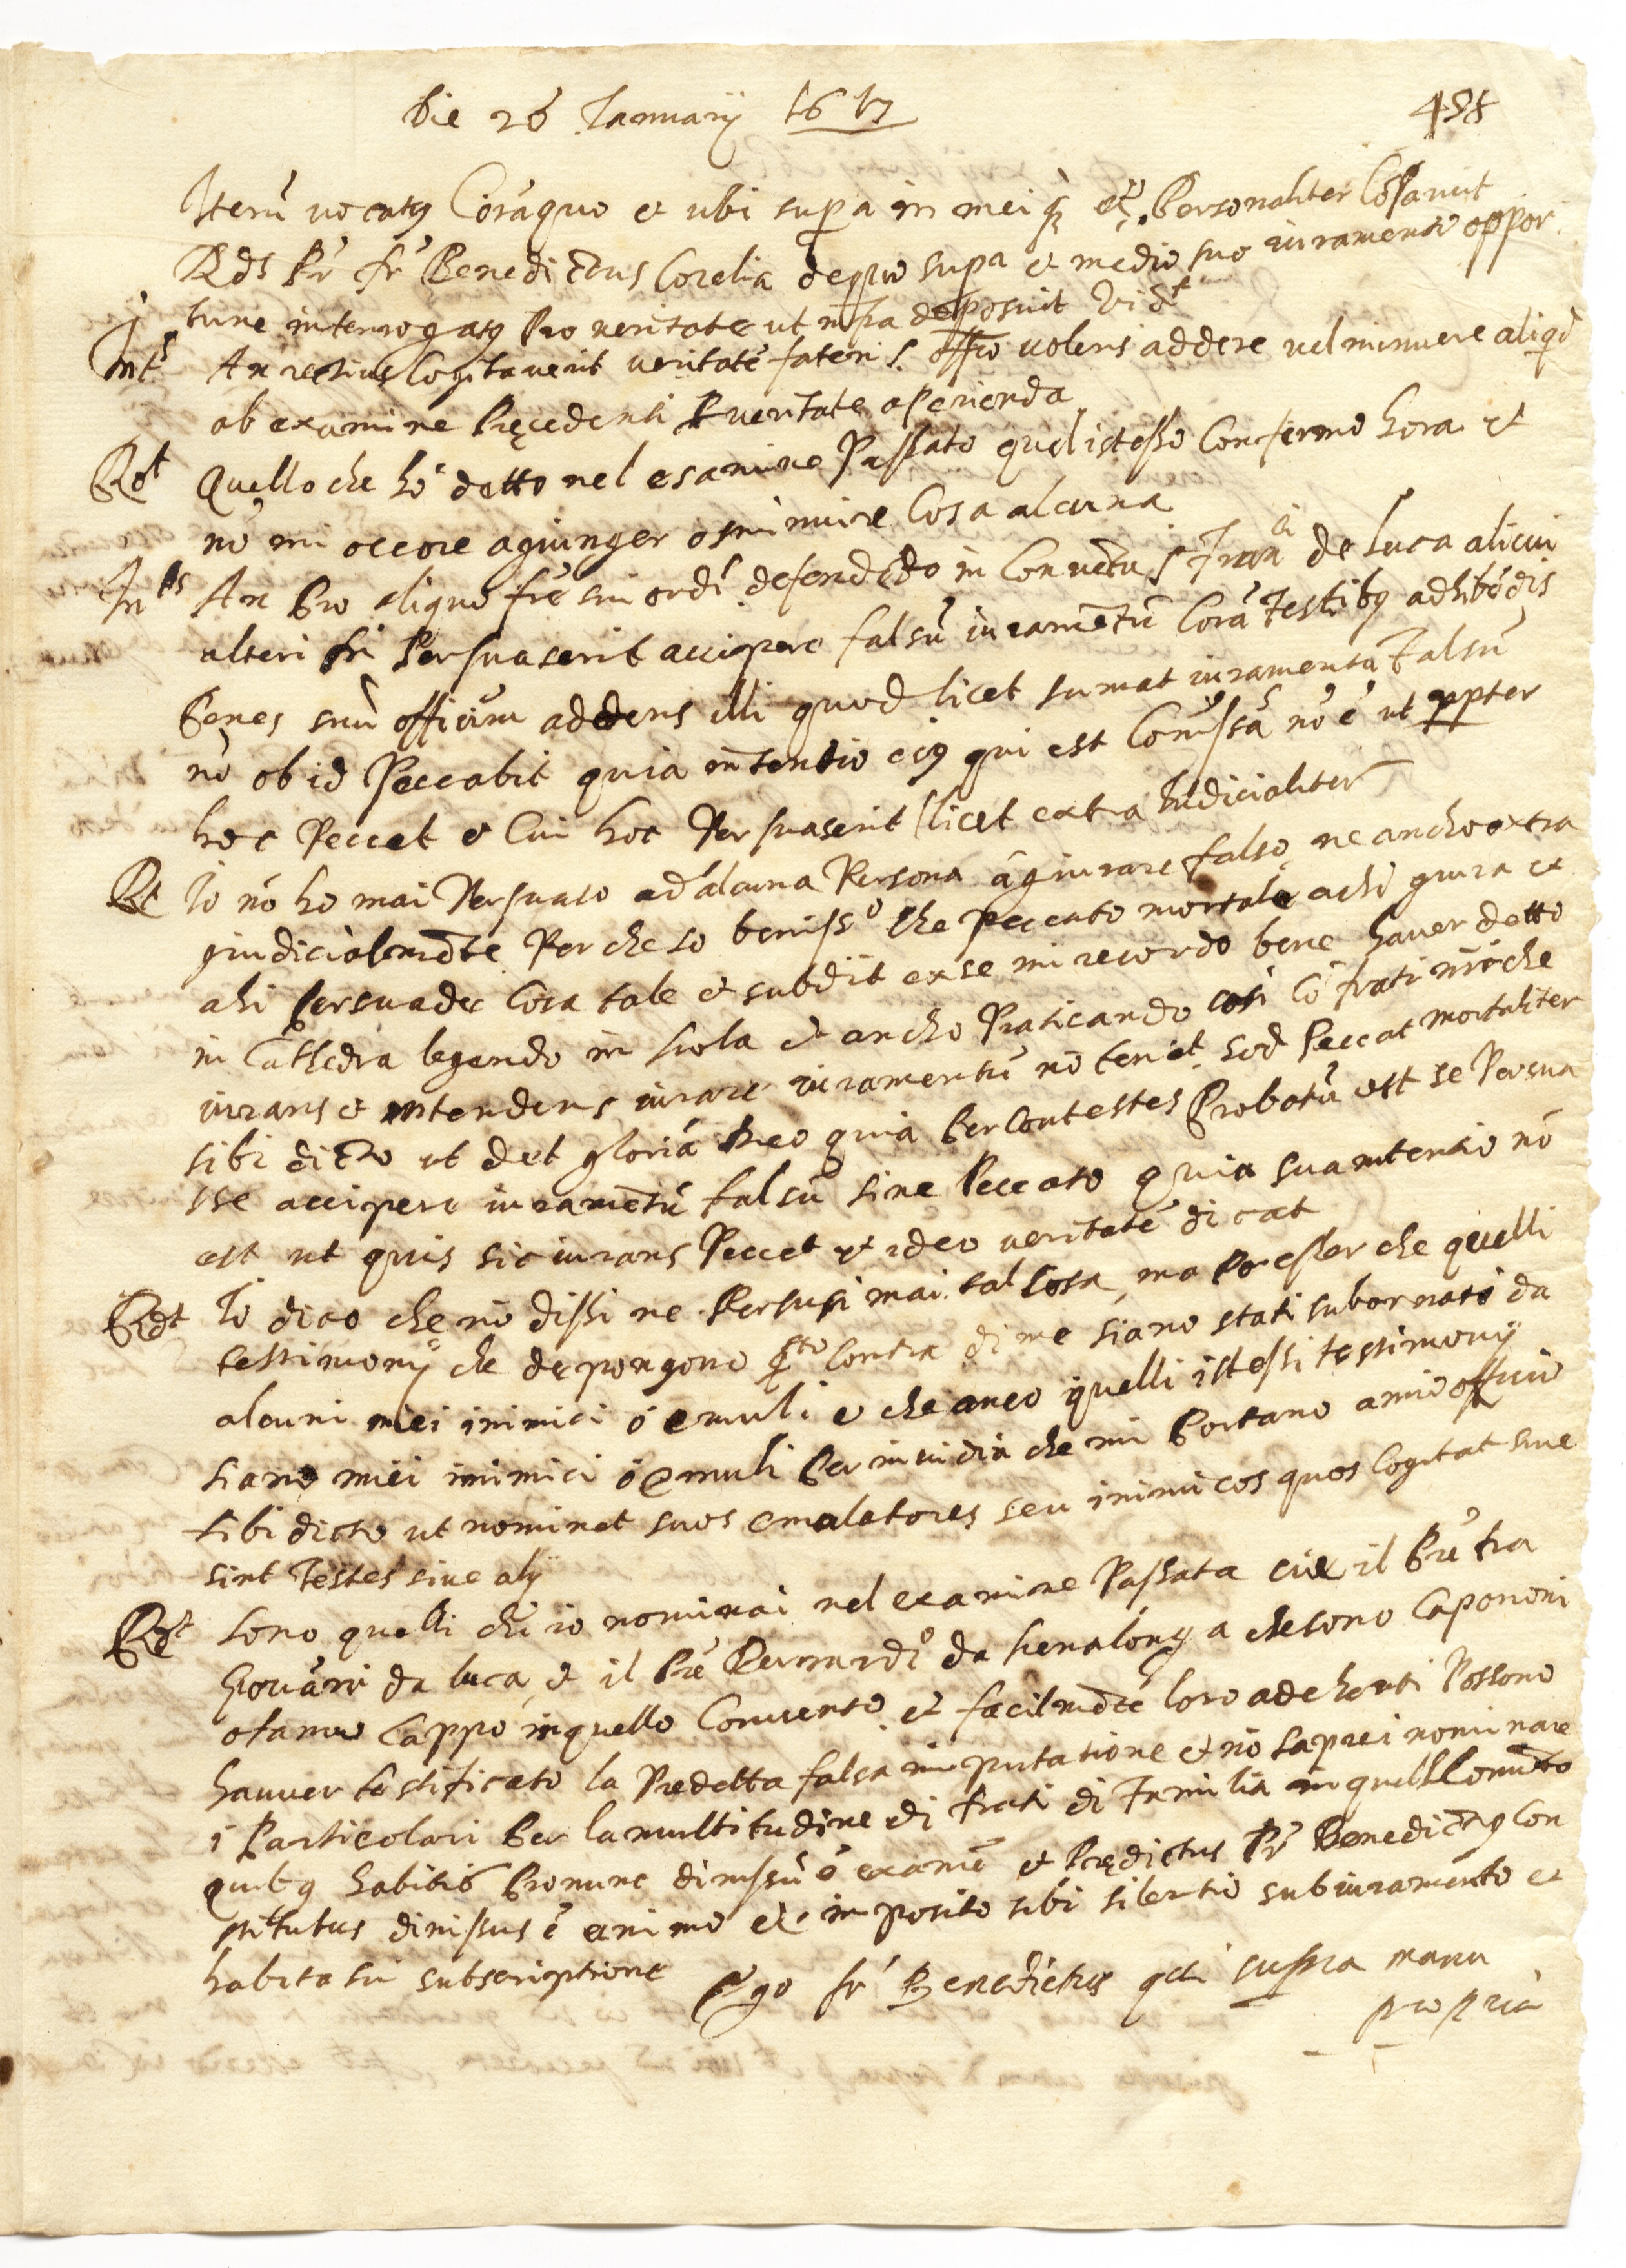 Die 26 Januarij 1617
458
Iterũ vocatq Corã quo et ubi supra in mei q̃ et̃. Personaliter Cõparuit
Rds Pr̃ fr̃ Benedictus Corelia de quo supra et medio suo iuramento oppor
tune interrogatq pro veritate ut infra deposuit vidt
Intˢ An rectius cogitaverit veritatẽ fateri S. offio volens addere vel minuere aliqd
ab examine Precedenti p veritate aperienda
Rdt Quello che hò detto nel esamine Passato quel istesso Confermo hora et
nõ mi occore agiunger ò sminuire Cosa alcuna
Intˢ An Pro aliquo fr̃e sui ordĩ defendẽdo in Convẽtu S Franci de luca alicui
alteri fri Persuaserit accipere falsũ iuramẽtũ Corã Testibq adhibẽdis
Penes suũ offitium addens illi quod licet sumat iuramentũ Falsũ
nõ ob id Peccabit quia intentio eiq qui est Comissã nõ ẽ ut ppter
hoc Peccet et Cui hoc Persuaserit licet extra Iudicialiter
Rt Io nõ ho mai Persuaso ad alcuna Persona à giurare falso ne ancho extra
giudicialmẽte Perche so benisso che peccato mortale achi giura et
ahi Persuade Cosa tale et subdit ex se mi recordo bene haver detto
in Cathedra legendo in scola et ancho Praticando così cõ frati nr̃i che
iurans et intendens iurare iuramentũ nõ tenet sed Peccat mortaliter
sibi dicto ut det gloriã Deo quia Per Contestes Probatũ est se Persua
sse accipere iuramẽtũ falsũ sine Peccato quia sua intentio nõ
est ut quis sic iurans Peccet et ideo veritatẽ dicat
Rdt Io dico che nõ dissi ne Persuasi mai tal Cosa, ma Po esser che quelli
testimonij che depongono qsto contra di me siano stati subornati da
alcuni miei inimici ò emuli e che anco quelli istessi testimonij
siano miei inimici ò emuli Per invidia che mi Portano a mio officio
sibi dicto ut nominet suos emulatores seu inimicos quos Cogitat sive
sint Testes sive alij
Rdt sono quelli chi io nominai nel examine Passata cive il Pr̃e fra
Giovãni da luca, et il Pr̃e Bernardĩo da Senalonga che sono Caponi
ò fanno Cappo in quello Convento et facilmẽte loro adeherti Possono
hauuer testificato la Predetta falsa imputatione et nõ saprei nominare
i Particolari Per la multitudine di frati di Familia in quello Convẽto
quibq habitis Pro nunc dimissũ ẽ examẽ et Predictus Pr̃ Benedictq Con
stitutus dimissus ẽ animo etc imposito sibi silentio sub iuramento et
habita sui subscriptione
Ego fr̃ Benedictus qui supra manu
propria